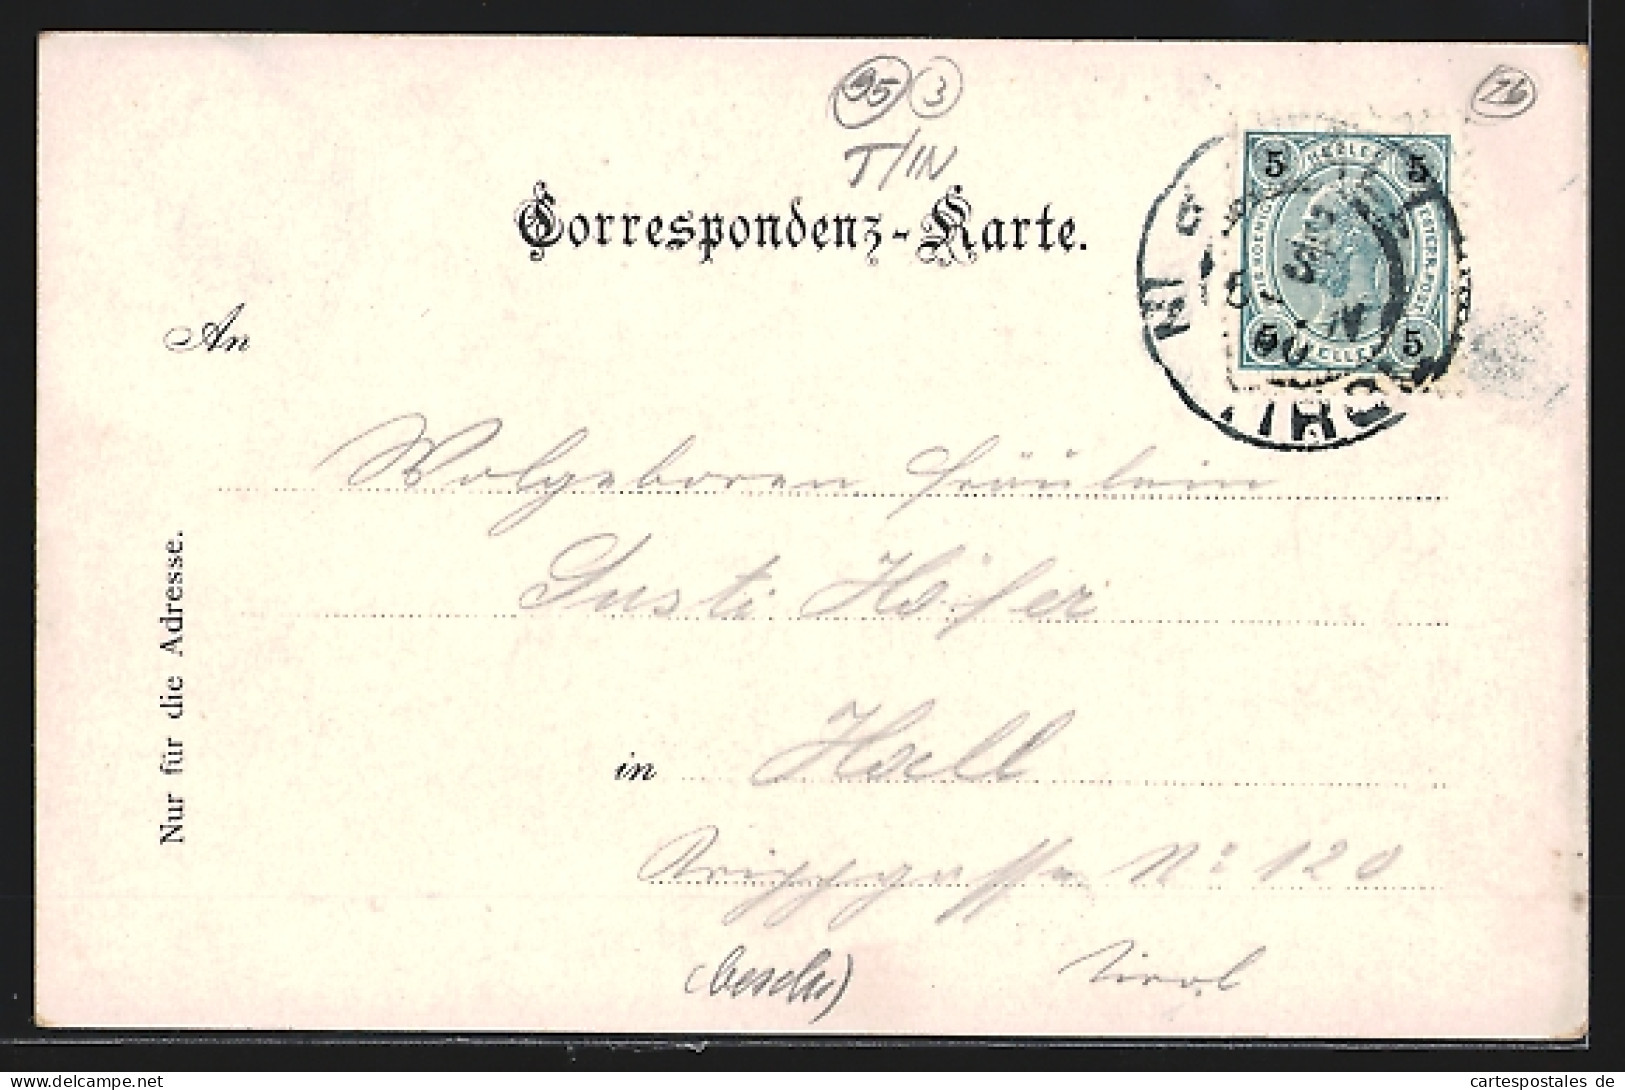 95 3
76
T/IN
Correspondenz-Karte.
5 HELLER 5
5 HELLER 5
An
TIROL
Wolgeboren Fräulein
Gusti Höfer
in Hall
Krippgasse No: 120
Tirol
Nur für die Adresse.
cartespostales de